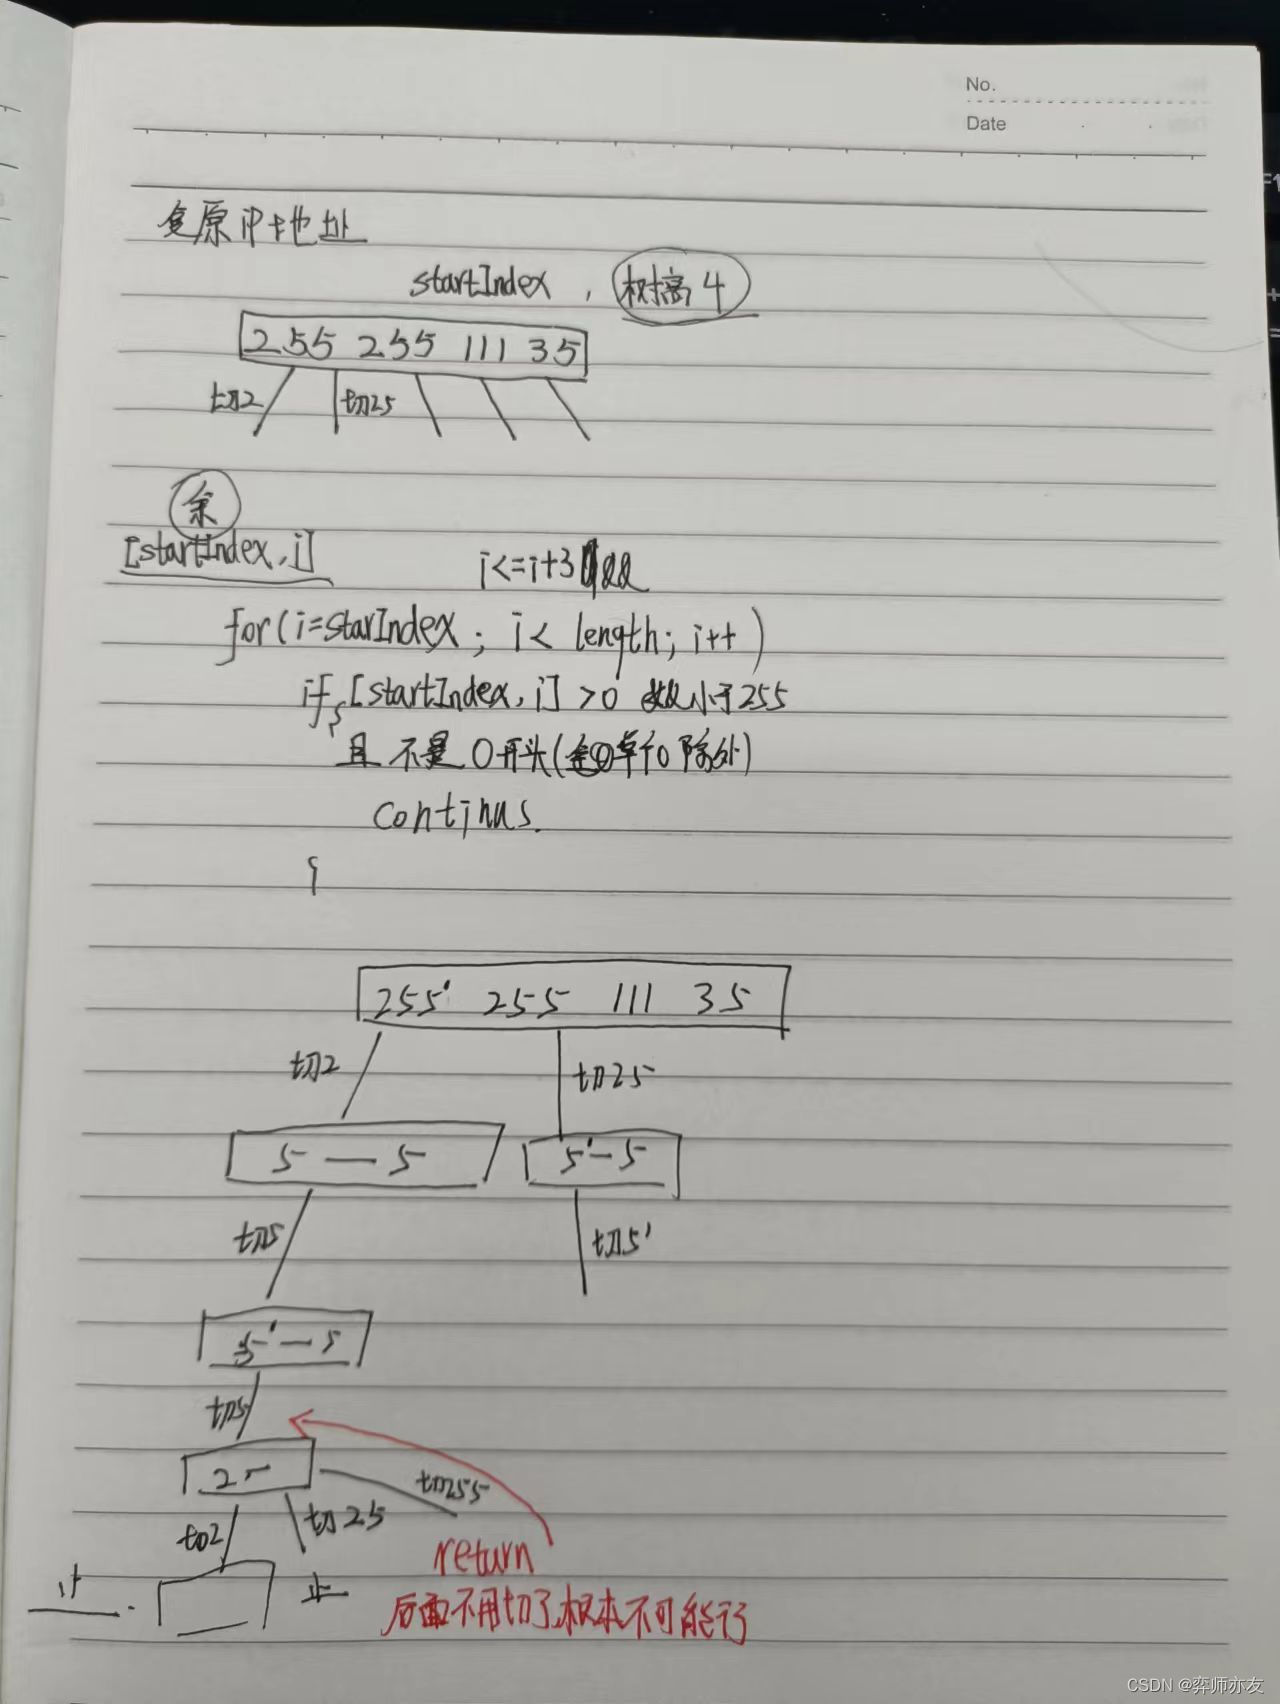 No.
Date
复原iP地址
startIndex , 树高4
255 255 111 35
切2 切25
余
[startIndex, i]
i<=i+3 &&
for(i=starIndex ; i< length; i++)
if [startIndex, i] >0 数小于255
且 不是 0开头(单个0除外)
continus.
255' 255 111 35
切2 切25
5 — 5 5'—5
切5 切5'
5'—5
切5
2-
切255
切2 切25
return
后面不用切了,根本不可能行
CSDN @弈师亦友